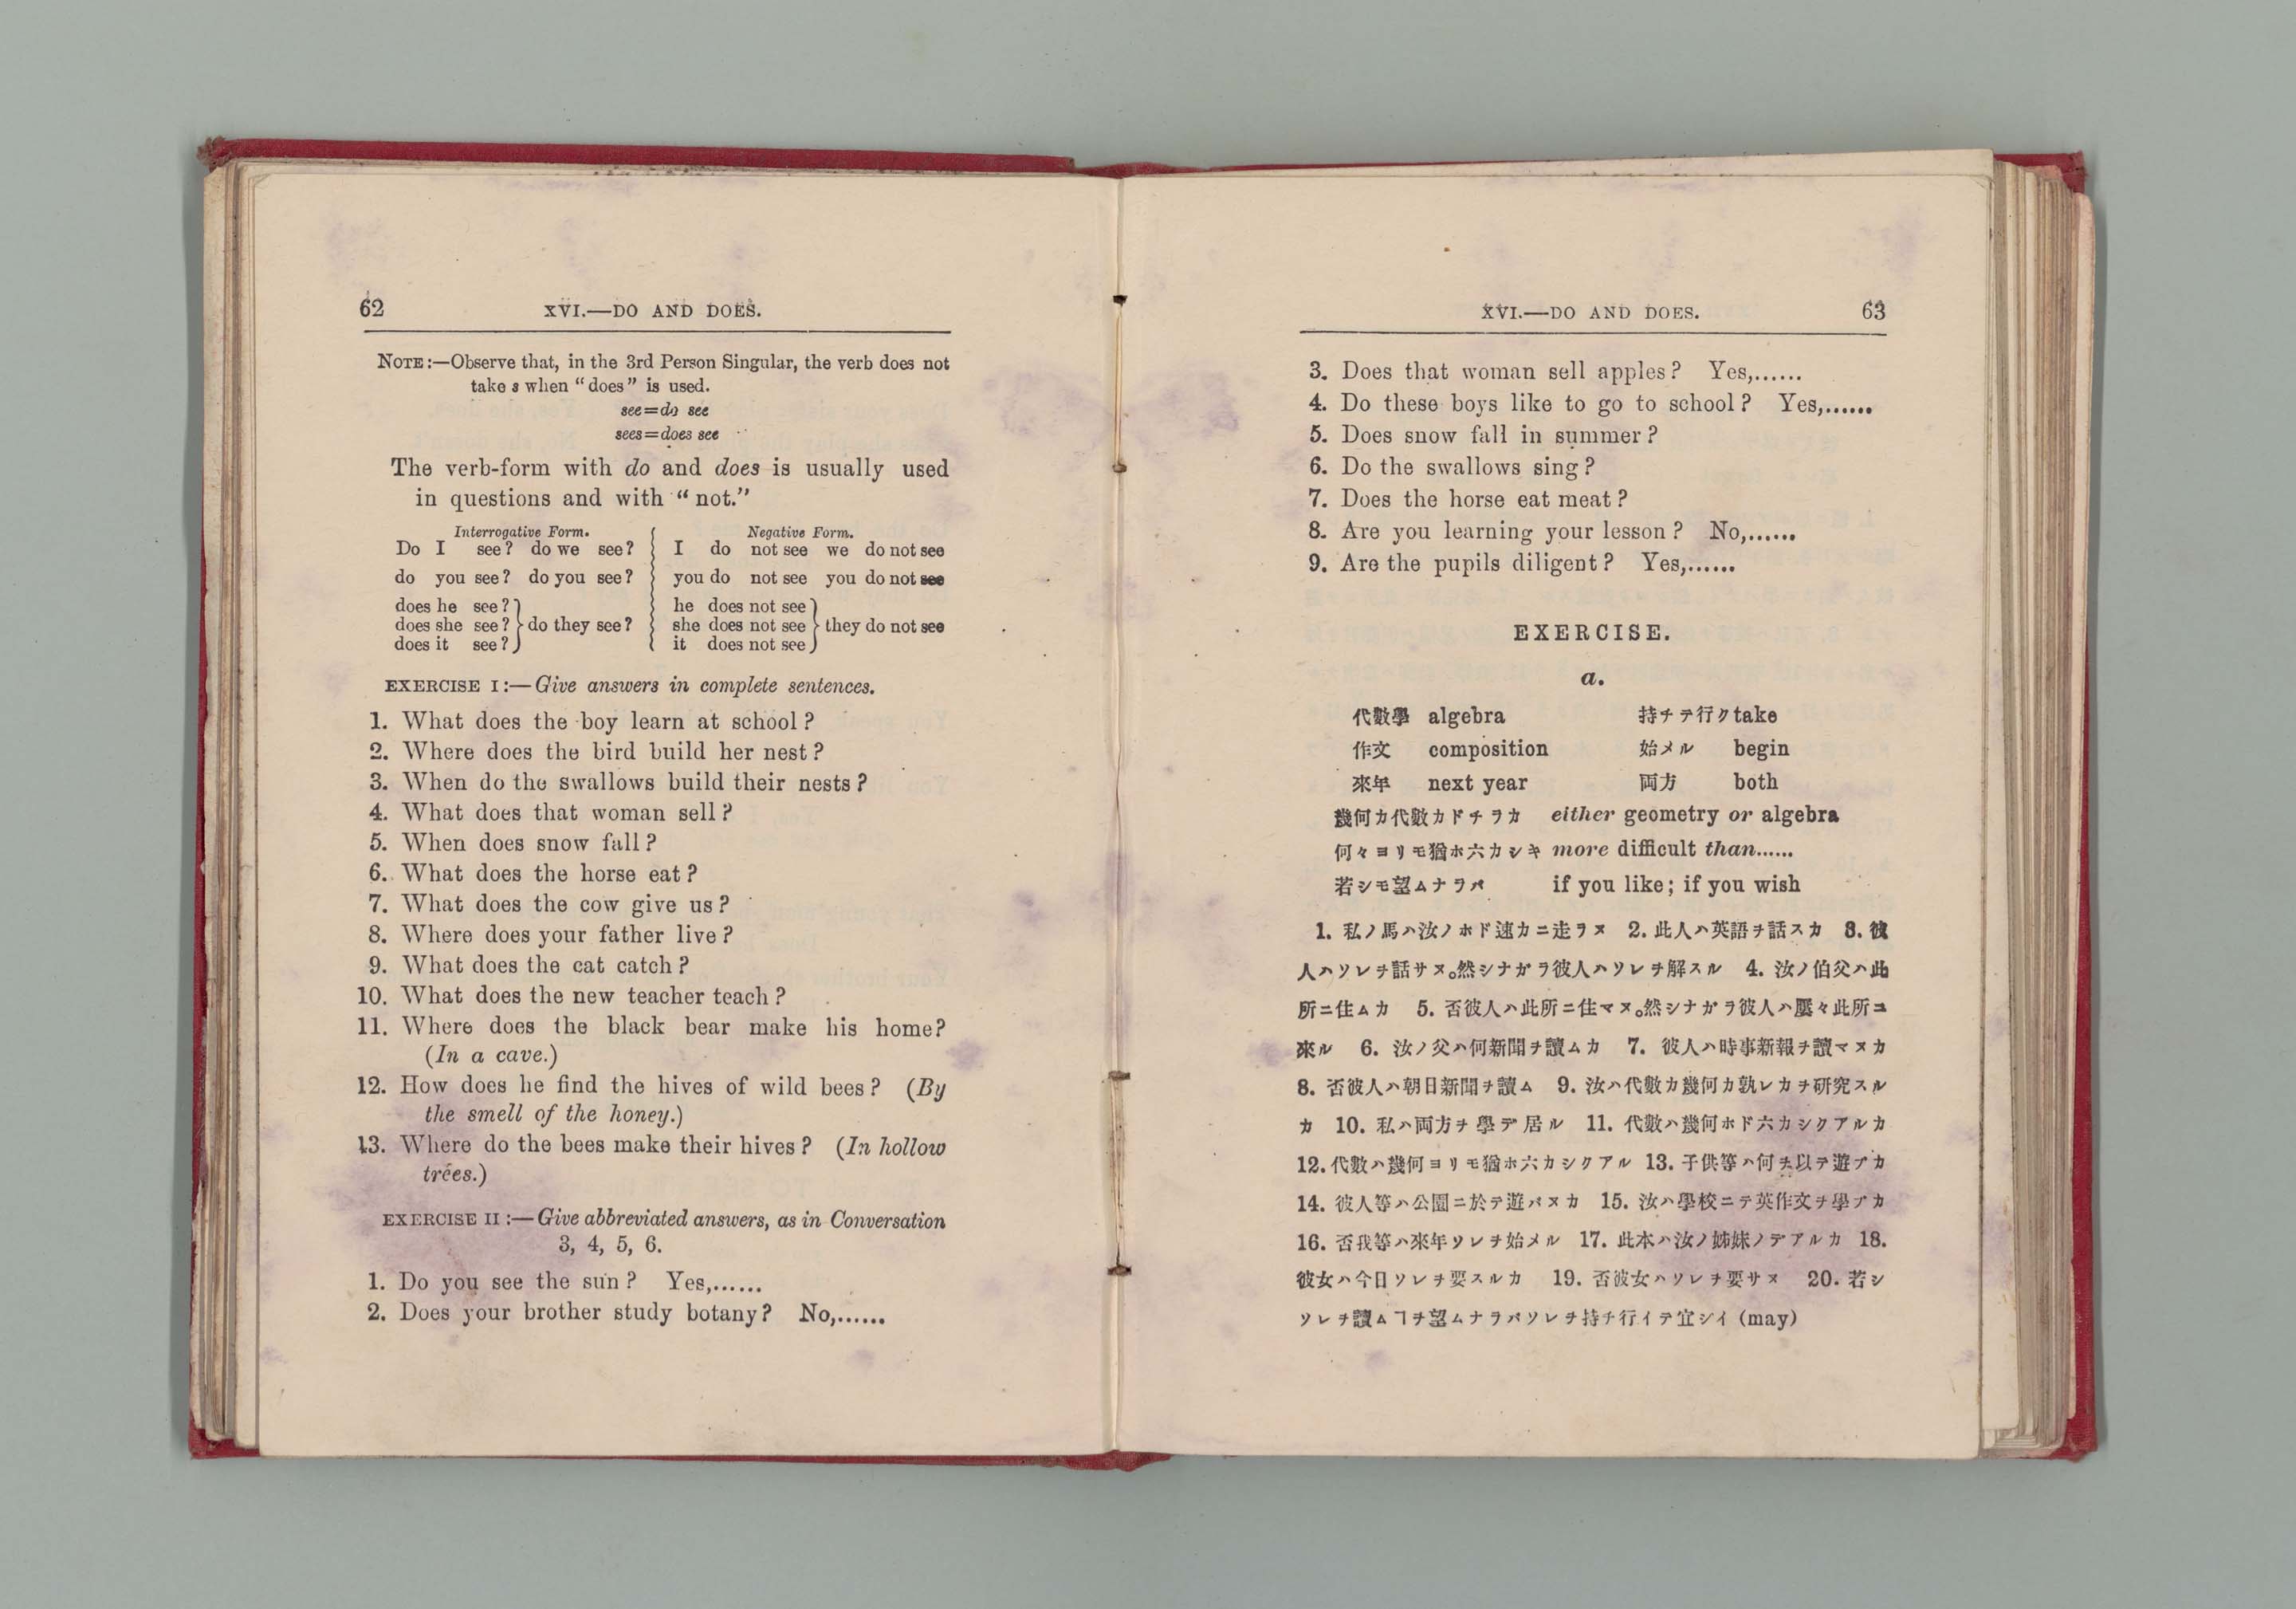 62 XVI.—DO AND DOES.
NOTE:—Observe that, in the 3rd Person Singular, the verb does not
take s when "does" is used.
see=do see
sees=does see
The verb-form with do and does is usually used
in questions and with "not."
Interrogative Form. Negative Form.
Do I see? do we see? I do not see we do not see
do you see? do you see? you do not see you do not see
does he see? he does not see
does she see? do they see? she does not see they do not see
does it see? it does not see
EXERCISE I:—Give answers in complete sentences.
1. What does the boy learn at school?
2. Where does the bird build her nest?
3. When do the swallows build their nests?
4. What does that woman sell?
5. When does snow fall?
6. What does the horse eat?
7. What does the cow give us?
8. Where does your father live?
9. What does the cat catch?
10. What does the new teacher teach?
11. Where does the black bear make his home?
(In a cave.)
12. How does he find the hives of wild bees? (By
the smell of the honey.)
13. Where do the bees make their hives? (In hollow
trees.)
EXERCISE II:—Give abbreviated answers, as in Conversation
3, 4, 5, 6.
1. Do you see the sun? Yes,......
2. Does your brother study botany? No,......
XVI.—DO AND DOES. 63
3. Does that woman sell apples? Yes,......
4. Do these boys like to go to school? Yes,......
5. Does snow fall in summer?
6. Do the swallows sing?
7. Does the horse eat meat?
8. Are you learning your lesson? No,......
9. Are the pupils diligent? Yes,......
EXERCISE.
a.
代數學 algebra 持チテ行ク take
作文 composition 始メル begin
來年 next year 両方 both
幾何カ代數カドチラカ either geometry or algebra
何々ヨリモ猶ホ六カシキ more difficult than......
若シモ望ムナラバ if you like; if you wish
1. 私ノ馬ハ汝ノホド速カニ走ラヌ 2. 此人ハ英語ヲ話スカ 3. 彼
人ハソレヲ話サヌ。然シナガラ彼人ハソレヲ解スル 4. 汝ノ伯父ハ此
所ニ住ムカ 5. 否彼人ハ此所ニ住マヌ。然シナガラ彼人ハ屢々此所ニ
來ル 6. 汝ノ父ハ何新聞ヲ讀ムカ 7. 彼人ハ時事新報ヲ讀マヌカ
8. 否彼人ハ朝日新聞ヲ讀ム 9. 汝ハ代數カ幾何カ孰レカヲ研究スル
カ 10. 私ハ両方ヲ學デ居ル 11. 代數ハ幾何ホド六カシクアルカ
12. 代數ハ幾何ヨリモ猶ホ六カシクアル 13. 子供等ハ何ヲ以テ遊ブカ
14. 彼人等ハ公園ニ於テ遊バヌカ 15. 汝ハ學校ニテ英作文ヲ學ブカ
16. 否我等ハ來年ソレヲ始メル 17. 此本ハ汝ノ姊妹ノデアルカ 18.
彼女ハ今日ソレヲ要スルカ 19. 否彼女ハソレヲ要サヌ 20. 若シ
ソレヲ讀ムヿヲ望ムナラバソレヲ持チ行イテ宜シイ (may)